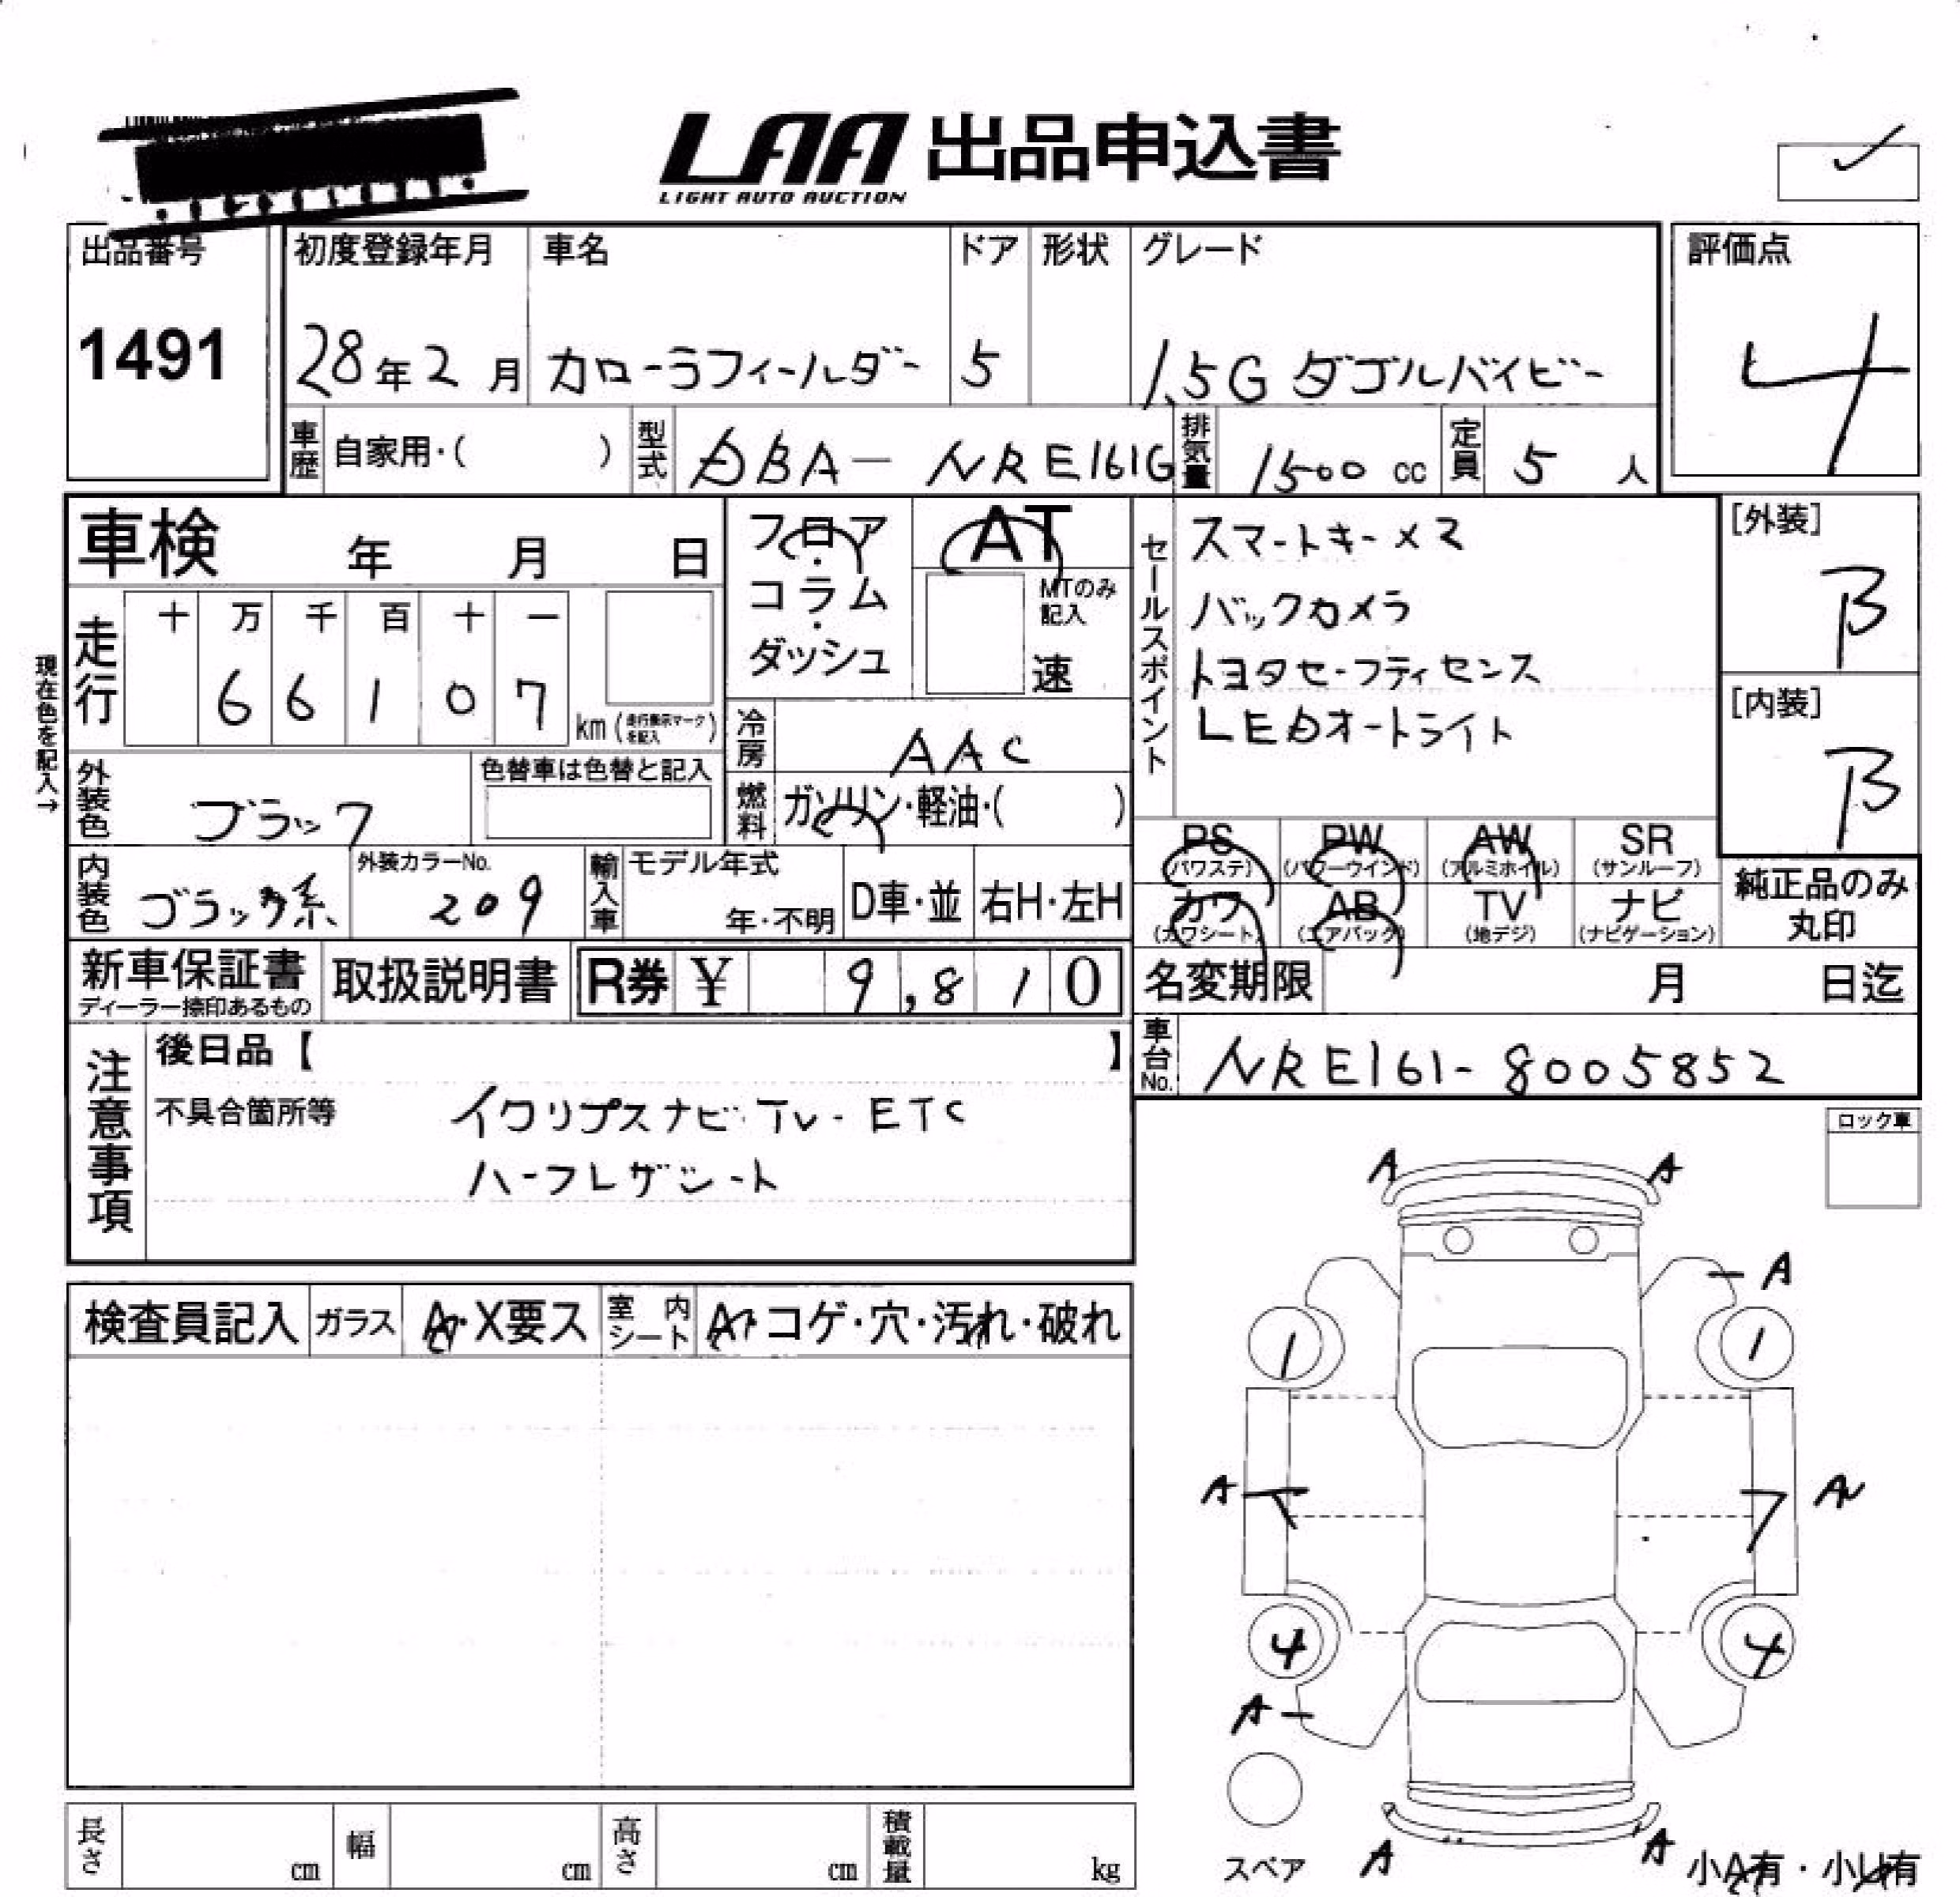 LAA 出品申込書
LIGHT AUTO AUCTION
出品番号 1491
初度登録年月 28年2月
車名 カローラフィールダー
ドア 5
形状
グレード 1.5G ダブルバイビー
評価点 4
車歴 自家用・( )
型式 DBA-NRE161G
排気量 1500 cc
定員 5 人
車検 年 月 日
フロア・コラム・ダッシュ
AT
MTのみ記入
速
セールスポイント
スマートキー×2
バックカメラ
トヨタセーフティセンス
LEDオートライト
[外装] B
[内装] B
現在色を記入→
走行 十 万 千 百 十 一
6 6 1 0 7
km (走行表示マークを記入)
冷房 AAC
燃料 ガソリン・軽油・( )
外装色 ブラック
色替車は色替と記入
内装色 ブラック系
外装カラーNo. 209
輸入車 モデル年式 年・不明
D車・並 右H・左H
PS (パワステ) PW (パワーウインド) AW (アルミホイル) SR (サンルーフ)
カワ (カワシート) AB (エアバック) TV (地デジ) ナビ (ナビゲーション)
純正品のみ丸印
新車保証書
ディーラー捺印あるもの
取扱説明書
R券 ¥ 9,810
名変期限 月 日迄
車台No. NRE161-8005852
注意事項
後日品【 】
不具合箇所等 イクリプスナビ・TV・ETC
ハーフレザシート
ロック車
検査員記入 ガラス A・X要ス 室内シート A・コゲ・穴・汚れ・破れ
A A
A
1 1
A A
4 4
A
スペア
A A
小A有・小U有
長さ cm 幅 cm 高さ cm 積載量 kg